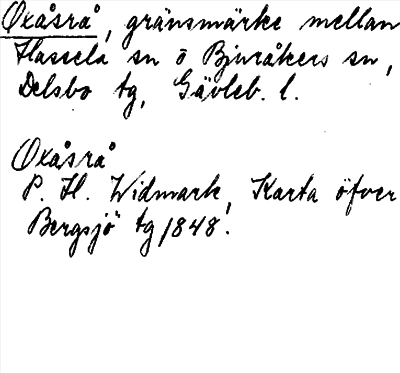 Oxåsrå, gränsmärke mellan
Hassela sn o Bjuråkers sn,
Delsbo tg, Gävleb. l.
Oxåsrå
P. H. Widmark, Karta öfver
Bergsjö tg 1848.